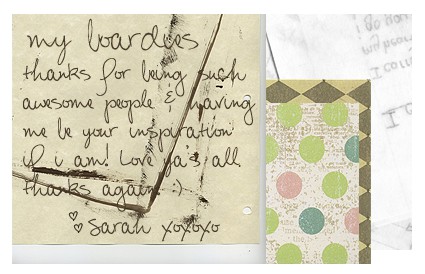 my boardies
thanks for being such
awesome people & having
me be your inspiration
if i am! Love ya's all
thanks again :)
Sarah xoxoxo